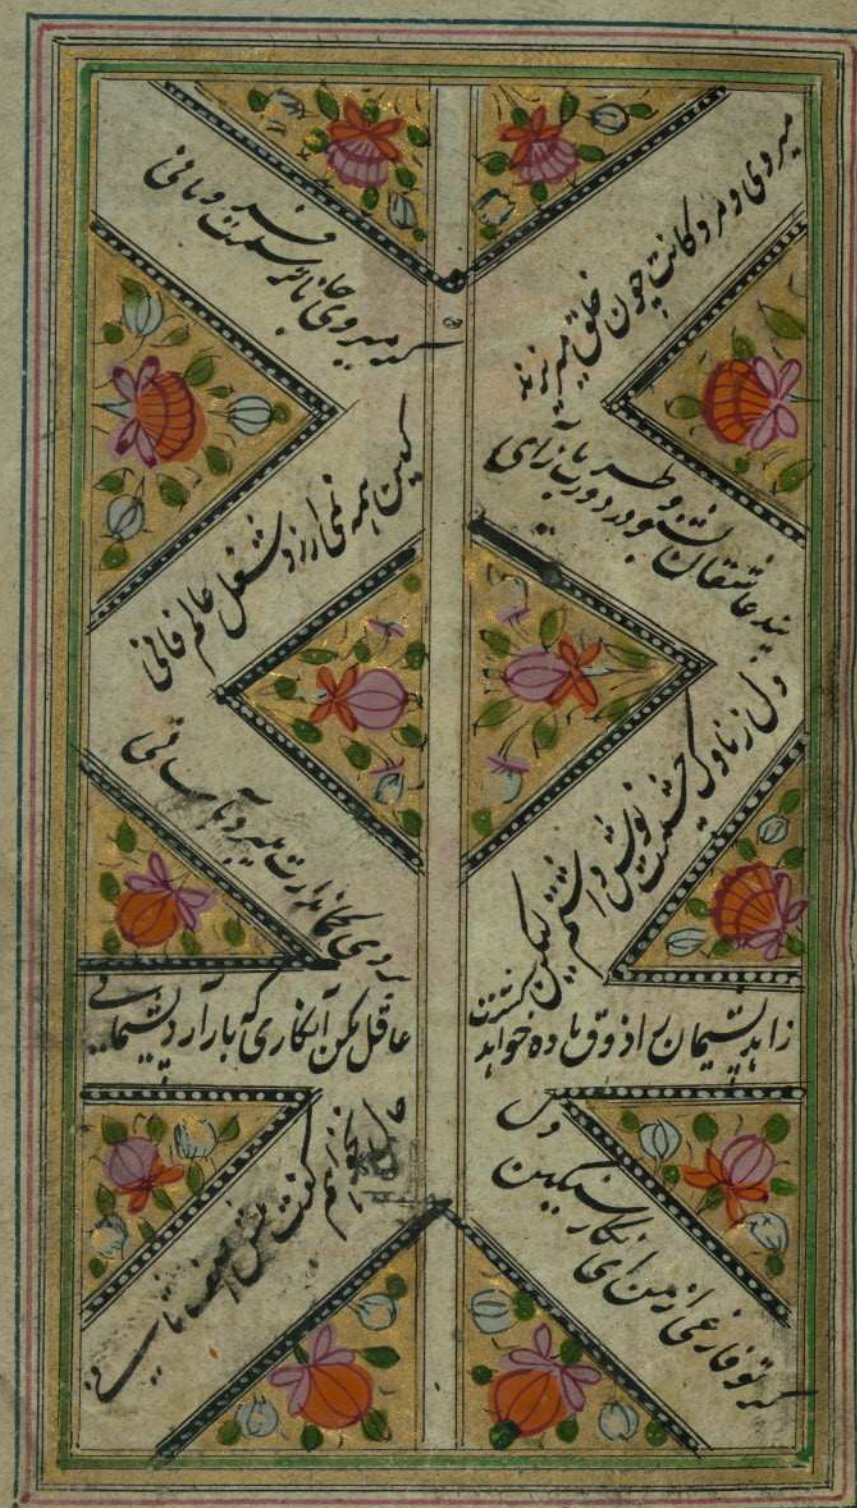 میروی و مردکانت چون خلق میریزند
که میروی جانا ترسمت فرومانی
پند عاشقان بشنو ور در طرب بازآی
کین همه نمی ارزد شغل عالم فانی
دل ز ناوک چشمت نوش داشتم لیکن
بروی کماندارت میبرد بآسانی
زاهد پشیمان را ذوق باده خواهد کشت
عاقل مکن آنکاری که بار آرد پشیمانی
گر تو فارغی از من ای نگار سنگین دل
حال بخواهم گفت پیش آصف ثانی